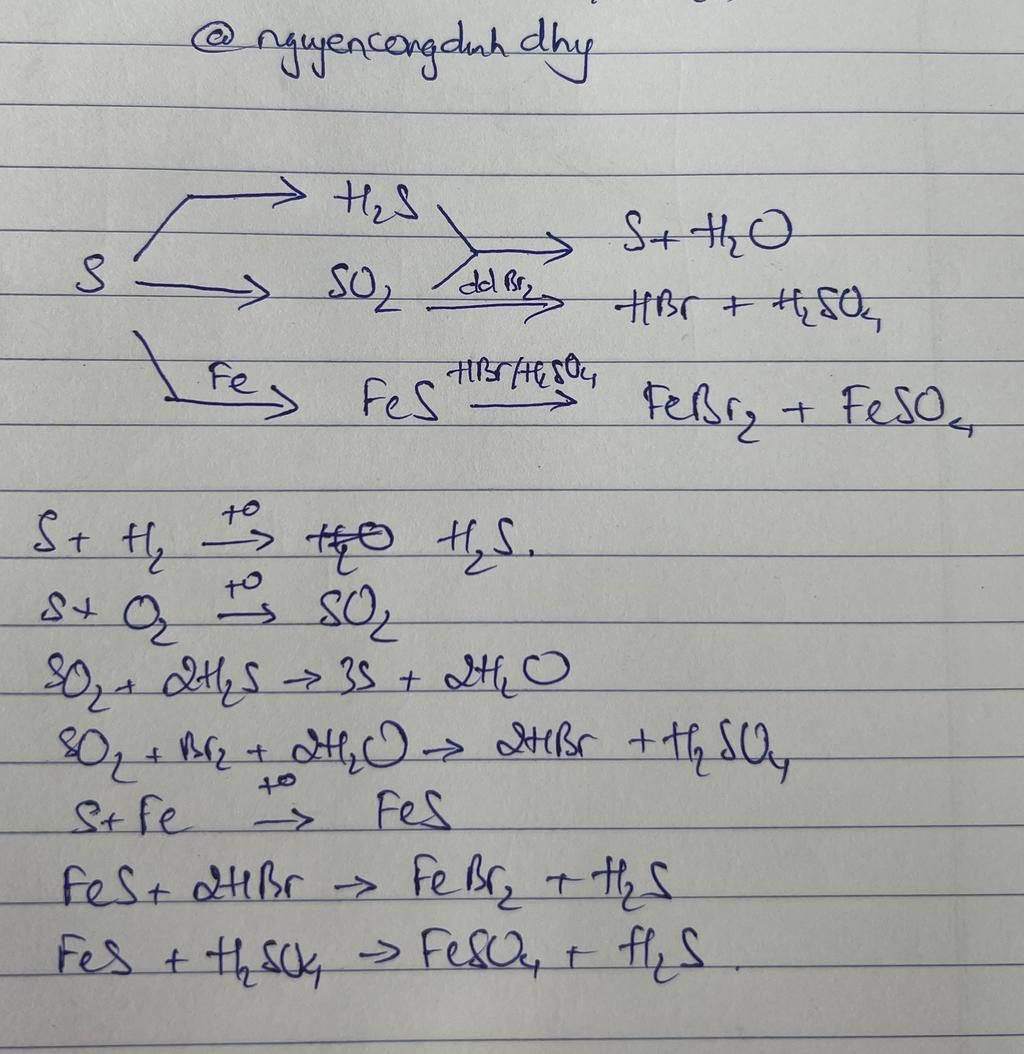 @ nguyencongdinh dhy
H₂S
S + H₂O
S
SO₂
dd Br₂
HBr + H₂SO₄
Fe
FeS
HBr/H₂SO₄
FeBr₂ + FeSO₄
S + H₂ →(t⁰) H₂O H₂S.
S + O₂ →(t⁰) SO₂
SO₂ + 2H₂S → 3S + 2H₂O
SO₂ + Br₂ + 2H₂O → 2HBr + H₂SO₄
S + Fe →(t⁰) FeS
FeS + 2HBr → FeBr₂ + H₂S
FeS + H₂SO₄ → FeSO₄ + H₂S.